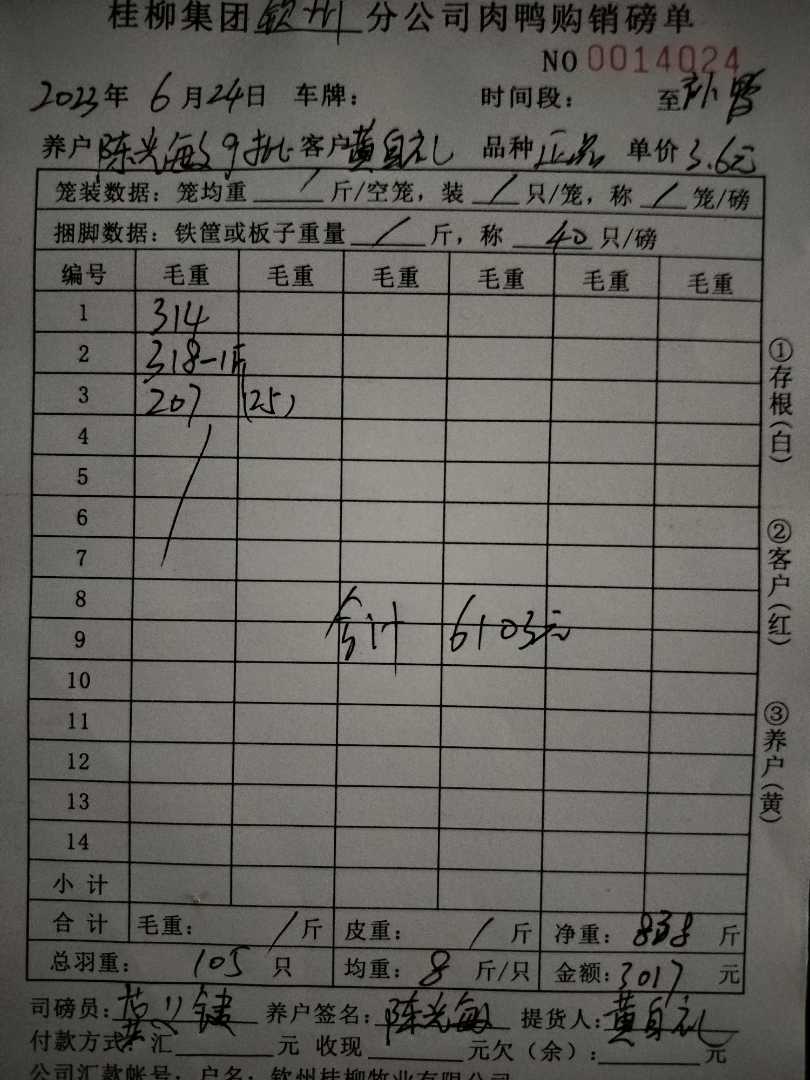 桂柳集团 钦州 分公司肉鸭购销磅单
NO 0014024
2023年 6月24日 车牌： 时间段： 至
养户 陈光敏 9批 客户 黄自礼 品种 正品 单价 3.6元
笼装数据：笼均重 / 斤/空笼，装 / 只/笼，称 / 笼/磅
捆脚数据：铁筐或板子重量 / 斤，称 40 只/磅
编号 毛重 毛重 毛重 毛重 毛重 毛重
1 314
2 318-1斤
3 207 (25)
4
5
6
7
8
合计 6103元
9
10
11
12
13
14
小计
合计 毛重： / 斤 皮重： / 斤 净重：838 斤
总羽重：105 只 均重：8 斤/只 金额：3017 元
司磅员： 养户签名：陈光敏 提货人：黄自礼
付款方式： 汇 元 收现 元欠（余）： 元
公司汇款帐号：户名：钦州桂柳牧业有限公司
①存根(白)
②客户(红)
③养户(黄)